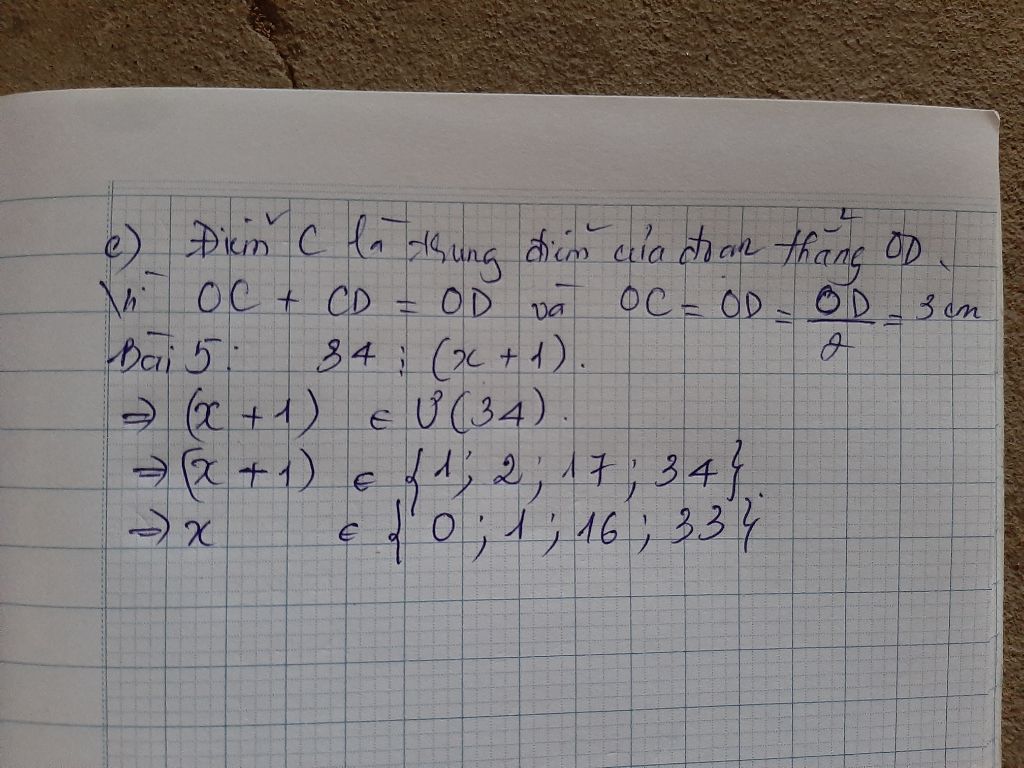 c) Điểm C là trung điểm của đoan thẳng OD.
Vì OC + CD = OD và OC = OD = OD/2 = 3 cm
Bài 5: 34 ⋮ (x + 1).
⇒ (x + 1) ∈ Ư(34).
⇒ (x + 1) ∈ {1; 2; 17; 34}.
⇒ x ∈ {0; 1; 16; 33}.